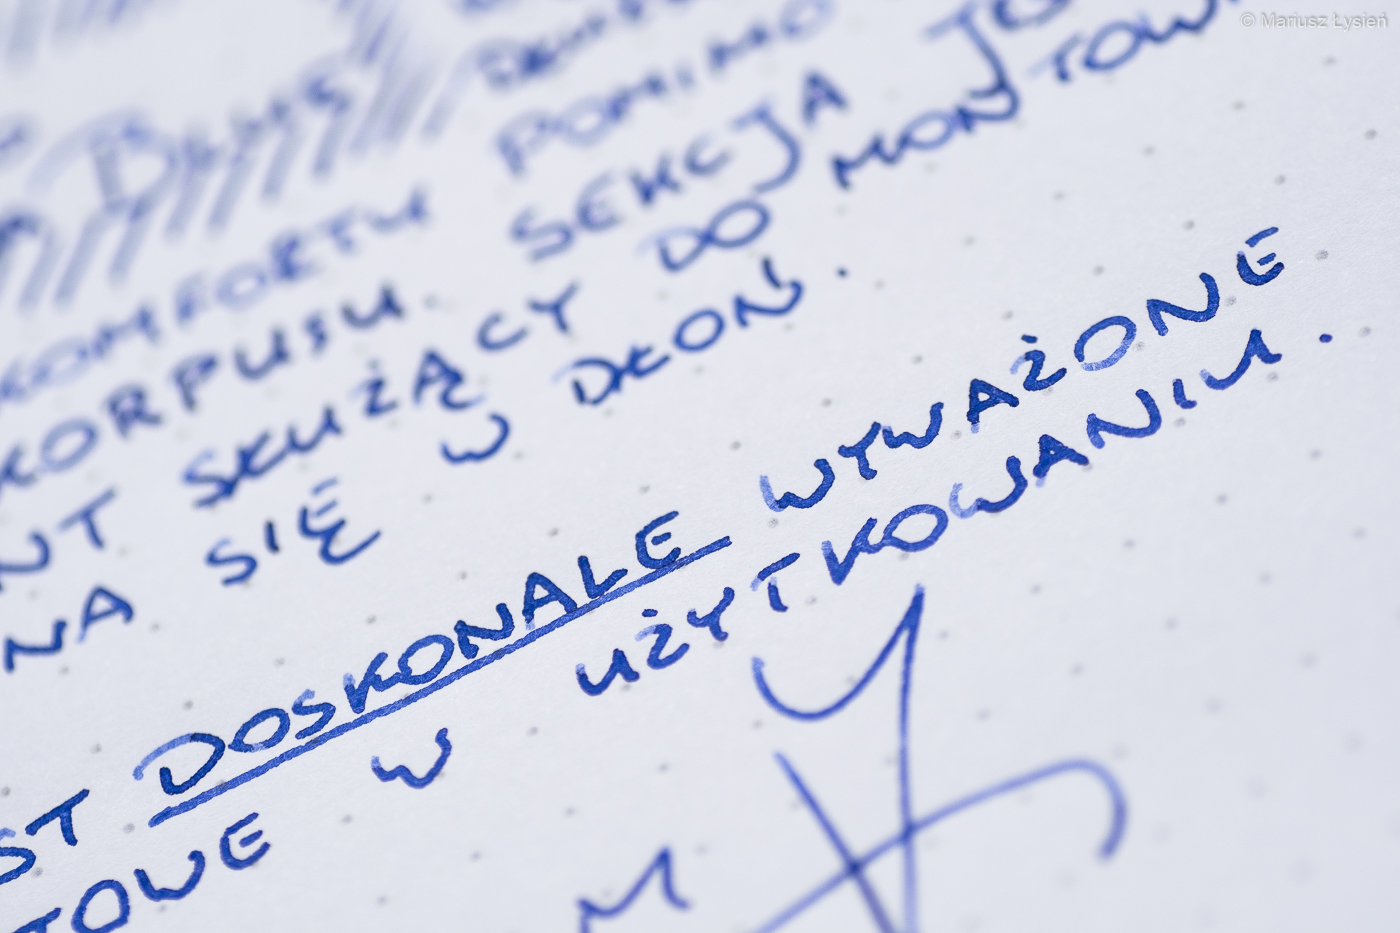 © Mariusz Łysień
KOMFORTU POMIMO
KORPUSU. SEKCJA
NT SŁUŻĄCY DO MONTOW
NA SIĘ W DŁOŃ.
ST DOSKONALE WYWAŻONE
TOWE W UŻYTKOWANIU.